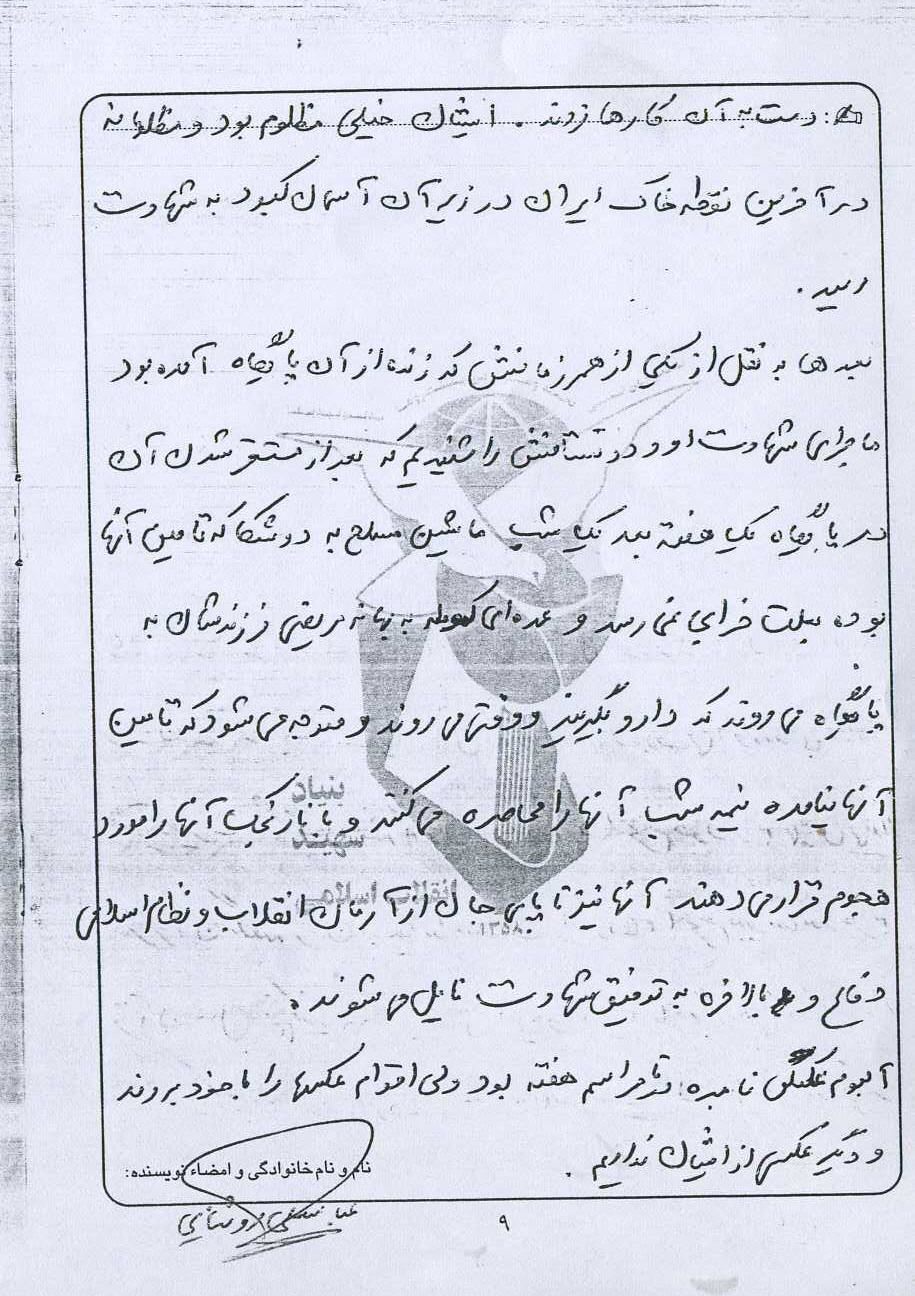 دست به آن کارها زدند. ایشان خیلی مظلوم بود و مظلومانه
در آخرین نقطه خاک ایران در زیر آن آسمان کبود به شهادت
رسید.
بعدها به نقل از یکی از همرزمانش که زنده از آن پایگاه آمده بود
ماجرای شهادت او و دوستانش را شنیدیم که بعد از مستقر شدن آن
در پایگاه یک هفته بعد یک شب ماشین مسلح به دوشکا که تامین آنها
بوده بعلت خرابی نمی رسد و عده‌ای به بهانه مریضی فرزندشان به
پایگاه می روند که دارو بگیرند و وقتی می روند و متوجه می شود که تامین
آنها نیامده نیمه شب آنها را محاصره می کنند و با نارنجک آنها را مورد
هجوم قرار می دهند آنها نیز تا پای جان از آرمان انقلاب و نظام اسلامی
دفاع و بالاخره به توفیق شهادت نایل می شوند.
آلبوم عکسش نامبره در مراسم هفته بود ولی اقوام عکسها را با خود بردند
و دیگر عکس از ایشان نداریم.
نام و نام خانوادگی و امضاء نویسنده:
۹
بنیاد
شهید
انقلاب اسلامی
۱۳۵۸